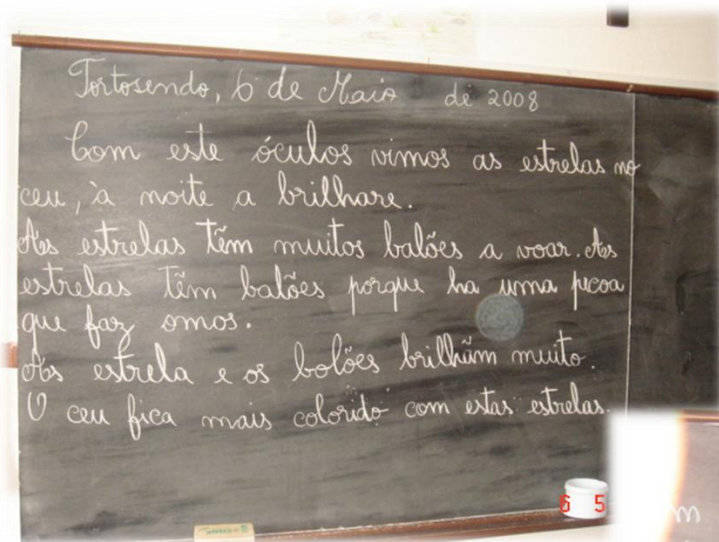 Tortosendo, 6 de Maio de 2008
Com este óculos vimos as estrelas no
ceu, à noite a brilhare.
As estrelas têm muitos balões a voar. As
estrelas têm balões porque ha uma pecoa
que faz omos.
As estrela e os bolões brilhũm muito.
O ceu fica mais colorido com estas estrelas.
6 5
m